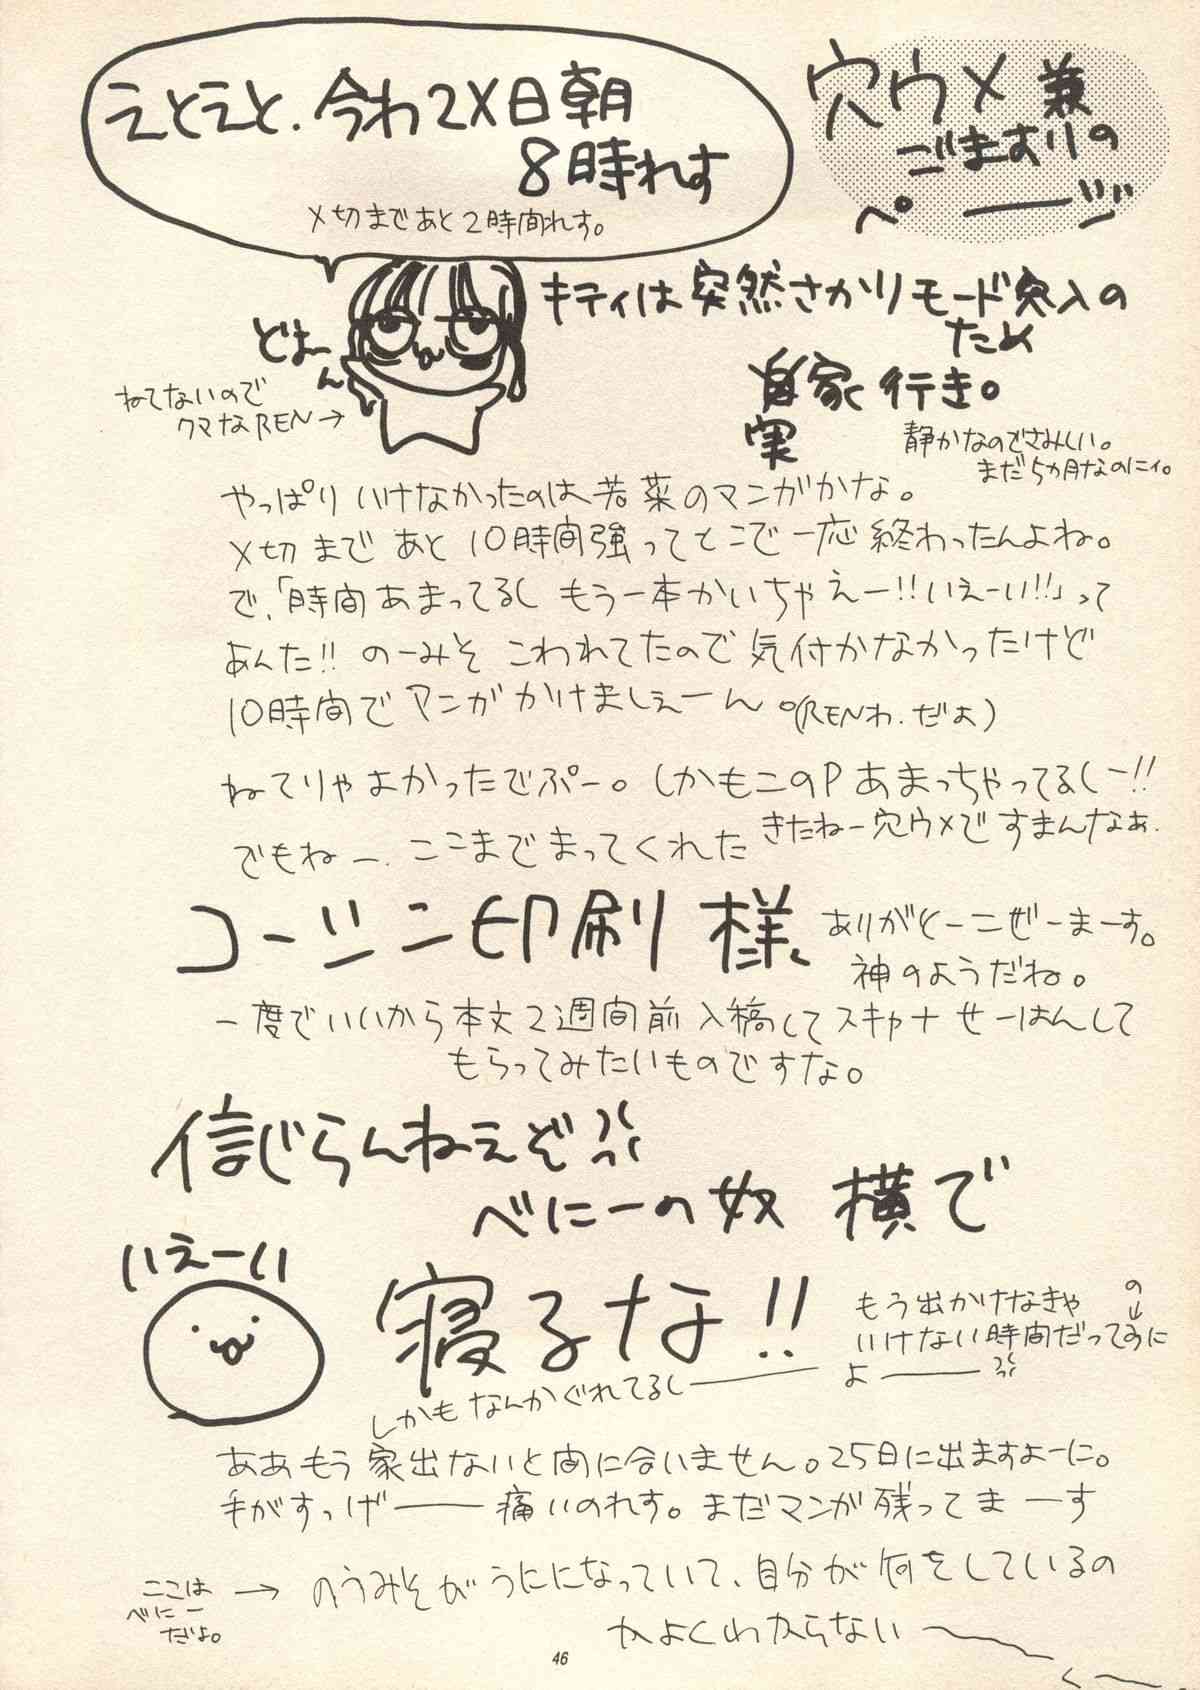 穴ウメ兼
ごますりの
ページ
えとえと、今わ2X日朝
8時れす
〆切まであと2時間れす。
どよーん
ねてないので
クマなREN→
キティは突然さかりモード突入の
ため
実家行き。
静かなのでさみしい。
まだ5ヵ月なのにィ。
やっぱりいけなかったのは若菜のマンガかな。
〆切まであと10時間強ってとこで一応終わったんよね。
で、「時間あまってるしもう一本かいちゃえー!!いえーい!!」って
あんた!!のーみそこわれてたので気付かなかったけど
10時間でマンガかけましぇーん。(RENわ.だよ)
ねてりゃよかったでぷー。しかもこのPあまっちゃってるしー!!
きたねー穴ウメですまんなぁ.
でもねー.ここまでまってくれた
コーシン印刷様、
ありがとーこぜーまーす。
神のようだね。
一度でいいから本文2週間前入稿してスキャナせーはんして
もらってみたいものですな。
信じらんねえぞ
べにーの奴横で
寝るな!!
いえーい
もう出かけなきゃ
いけない時間だってのに
よー
しかもなんかぐれてるしー
ああもう家出ないと間に合いません。25日に出ますよーに。
手がすっげー痛いのれす。まだマンガ残ってまーす
ここは
べにー
だよ。
→のうみそがうにになっていて、自分が何をしているの
かよくわからない〜
46